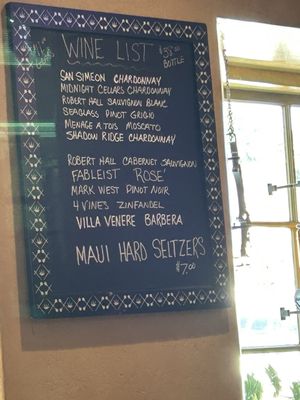 WINE LIST
BOTTLE
SAN SIMEON CHARDONNAY
MIDNIGHT CELLARS CHARDONNAY
ROBERT HALL SAUVIGNON BLANC
SEAGLASS PINOT GRIGIO
MENAGE A TOIS MOSCATO
SHADOW RIDGE CHARDONNAY
ROBERT HALL CABERNET SAUVIGNON
FABLEIST ROSE'
MARK WEST PINOT NOIR
4 VINES ZINFANDEL
VILLA VENERE BARBERA
MAUI HARD SELTZERS
$7.00